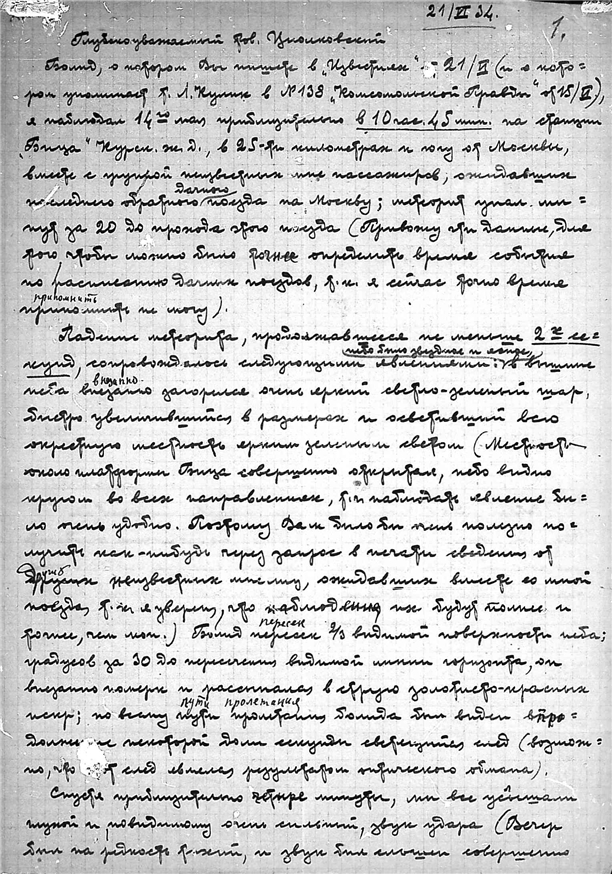 21/VI 34.
1.
Глубокоуважаемый тов. Циолковский
Болид, о котором Вы пишете в „Известиях“ от 21/VI (и о кото=
ром упоминает т. Л. Кулик в №138 „Комсомольской Правды“ от 15/VI),
я наблюдал 14го мая приблизительно в 10 час. 45 мин. на станции
„Бица“ Курск. ж.д., в 25-ти километрах к югу от Москвы,
вместе с группой неизвестных мне пассажиров, ожидавших
последнего обратного дачного поезда на Москву; метеорит упал ми=
нут за 20 до прохода этого поезда (Привожу эти данные, для
того чтобы можно было точнее определить время события
по расписанию дачных поездов, т.к. я сейчас точно время
припомнить
припомнить не могу).
Падение метеорита, продолжавшееся не меньше 2х се=
небо было звездное и ясное,
кунд, сопровождалось следующими явлениями: в вышине
внезапно
неба внезапно загорелся очень яркий светло-зеленый шар,
быстро увеличившийся в размерах и осветивший всю
окрестную местность ярким зеленым светом (Местность
около платформы Бица совершенно открытая, небо видно
кругом во всех направлениях, т.ч. наблюдать явление бы=
ло очень удобно. Поэтому Вам было бы очень полезно по=
лучить как-нибудь через запрос в печати сведения от
других
других неизвестных мне лиц, ожидавших вместе со мной
поезда, т.к. я уверен, что наблюдения их будут полнее и
точнее, чем мои.) Болид пересек 2/3 видимой поверхности неба;
пересек
градусов за 30 до пересечения видимой линии горизонта, он
внезапно померк и рассыпался в струю золотисто-красных
пути пролетания
искр; по всему пути пролетания болида был виден впро=
должение некоторой доли секунды светящийся след (возмож=
но, что след явился результатом оптического обмана).
Спустя приблизительно четыре минуты, мы все услышали
глухой и, повидимому очень сильный, звук удара (Вечер
был на редкость тихий, и звук был слышен совершенно